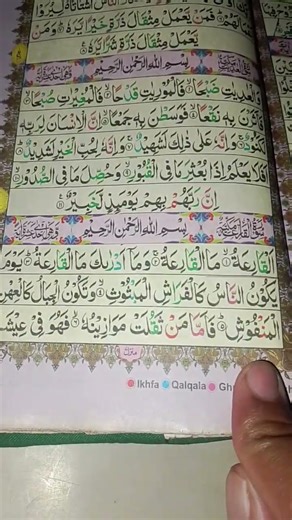 فَمَنْ يَّعْمَلْ مِثْقَالَ ذَرَّةٍ خَيْرًا يَّرَهٗ وَمَنْ
يَّعْمَلْ مِثْقَالَ ذَرَّةٍ شَرًّا يَّرَهٗ
بِسْمِ اللّٰهِ الرَّحْمٰنِ الرَّحِيْمِ
وَالْعٰدِيٰتِ ضَبْحًا فَالْمُوْرِيٰتِ قَدْحًا فَالْمُغِيْرٰتِ صُبْحًا
فَاَثَرْنَ بِهٖ نَقْعًا فَوَسَطْنَ بِهٖ جَمْعًا اِنَّ الْاِنْسَانَ لِرَبِّهٖ
لَكَنُوْدٌ وَاِنَّهٗ عَلٰى ذٰلِكَ لَشَهِيْدٌ وَاِنَّهٗ لِحُبِّ الْخَيْرِ لَشَدِيْدٌ
اَفَلَا يَعْلَمُ اِذَا بُعْثِرَ مَا فِى الْقُبُوْرِ وَحُصِّلَ مَا فِى الصُّدُوْرِ
اِنَّ رَبَّهُمْ بِهِمْ يَوْمَئِذٍ لَّخَبِيْرٌ
بِسْمِ اللّٰهِ الرَّحْمٰنِ الرَّحِيْمِ
اَلْقَارِعَةُ مَا الْقَارِعَةُ وَمَآ اَدْرٰىكَ مَا الْقَارِعَةُ يَوْمَ
يَكُوْنُ النَّاسُ كَالْفَرَاشِ الْمَبْثُوْثِ وَتَكُوْنُ الْجِبَالُ كَالْعِهْنِ
الْمَنْفُوْشِ فَاَمَّا مَنْ ثَقُلَتْ مَوَازِيْنُهٗ فَهُوَ فِيْ عِيْشَ
Ikhfa Qalqala Gh